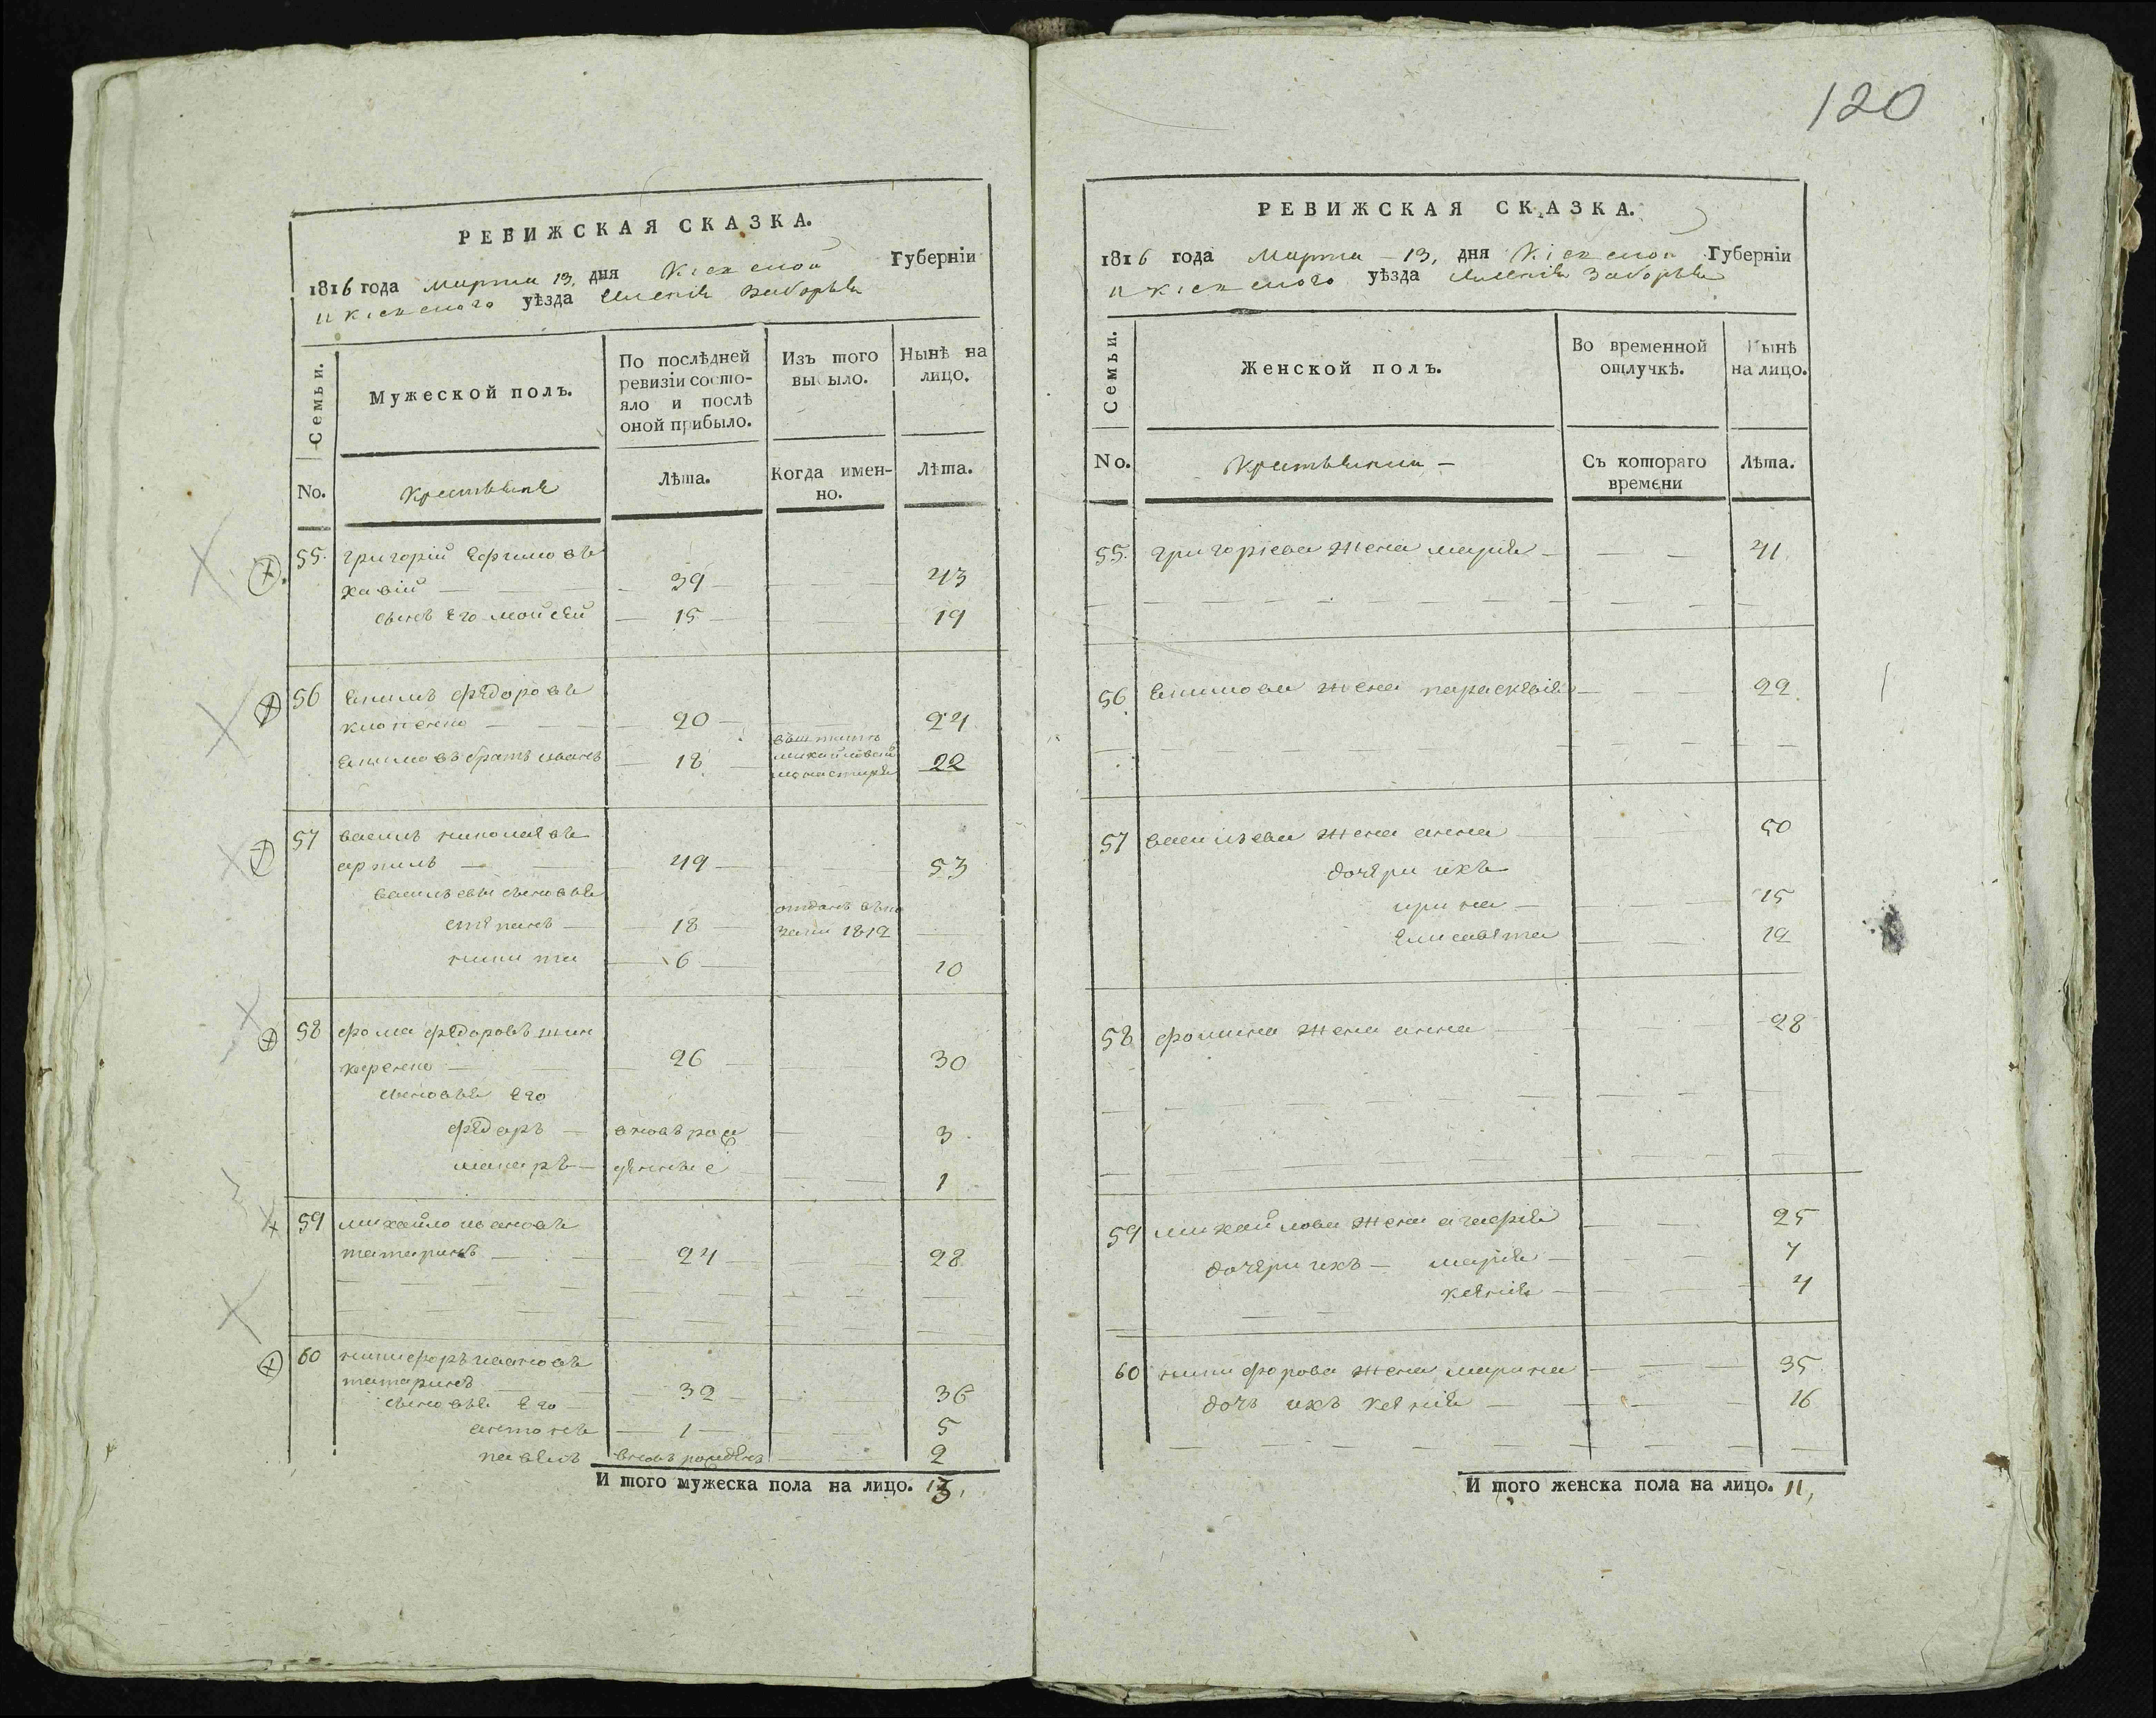 120
РЕВИЖСКАЯ СКАЗКА.
1816 года марта 13, дня Кіевской Губерніи
и Кіевского уѣзда Заборья
Семьи.
Мужеской полъ.
По послѣдней ревизіи состо-
яло и послѣ
оной прибыло.
Изъ того
выбыло.
Нынѣ на
лицо.
No.
Крестьяне
Лѣта.
Когда имен-
но.
Лѣта.
55. григорій Ефимовъ
— 39 — 43
сынъ Его мойсей — 15 — 19
56 Екимъ федоровъ
— 20 — 24
Екимовъ братъ иванъ — 18 22
монастыря
57 василь николаевъ
— 49 — 53
васильевы сыновья
степанъ — 18 отданъ въ
1812
никита — 6 — 10
58 фома федоровъ
— 26 — 30
сыновья Его
федоръ — вновь рож 3
макаръ — денные 1
59 михайло ивановъ
татаринъ — 24 — 28
60 никифоръ ивановъ
татаринъ — 32 — 36
сыновья Его
антонъ — 1 — 5
павелъ вновь рожденъ — 2
И того мужеска пола на лицо. 13,
РЕВИЖСКАЯ СКАЗКА.
1816 года марта — 13, дня Кіевской Губерніи
и Кіевского уѣзда Заборья
Семьи.
Женской полъ.
Во временной
отлучкѣ.
Нынѣ
на лицо.
No.
Крестьянки —
Съ котораго
времени
Лѣта.
55. григоріева жена марія — 41.
56 Екимова жена параскевія — 22.
57 васильева жена анна 50
дочери ихъ
ирина — 15
Елисавета 12
58 фомина жена анна 28
59 михайлова жена агафія 25
дочери ихъ — марія — 7
ксенія — 4
60 никифорова жена марина 35
дочь ихъ ксенія — 16
И того женска пола на лицо. 11,